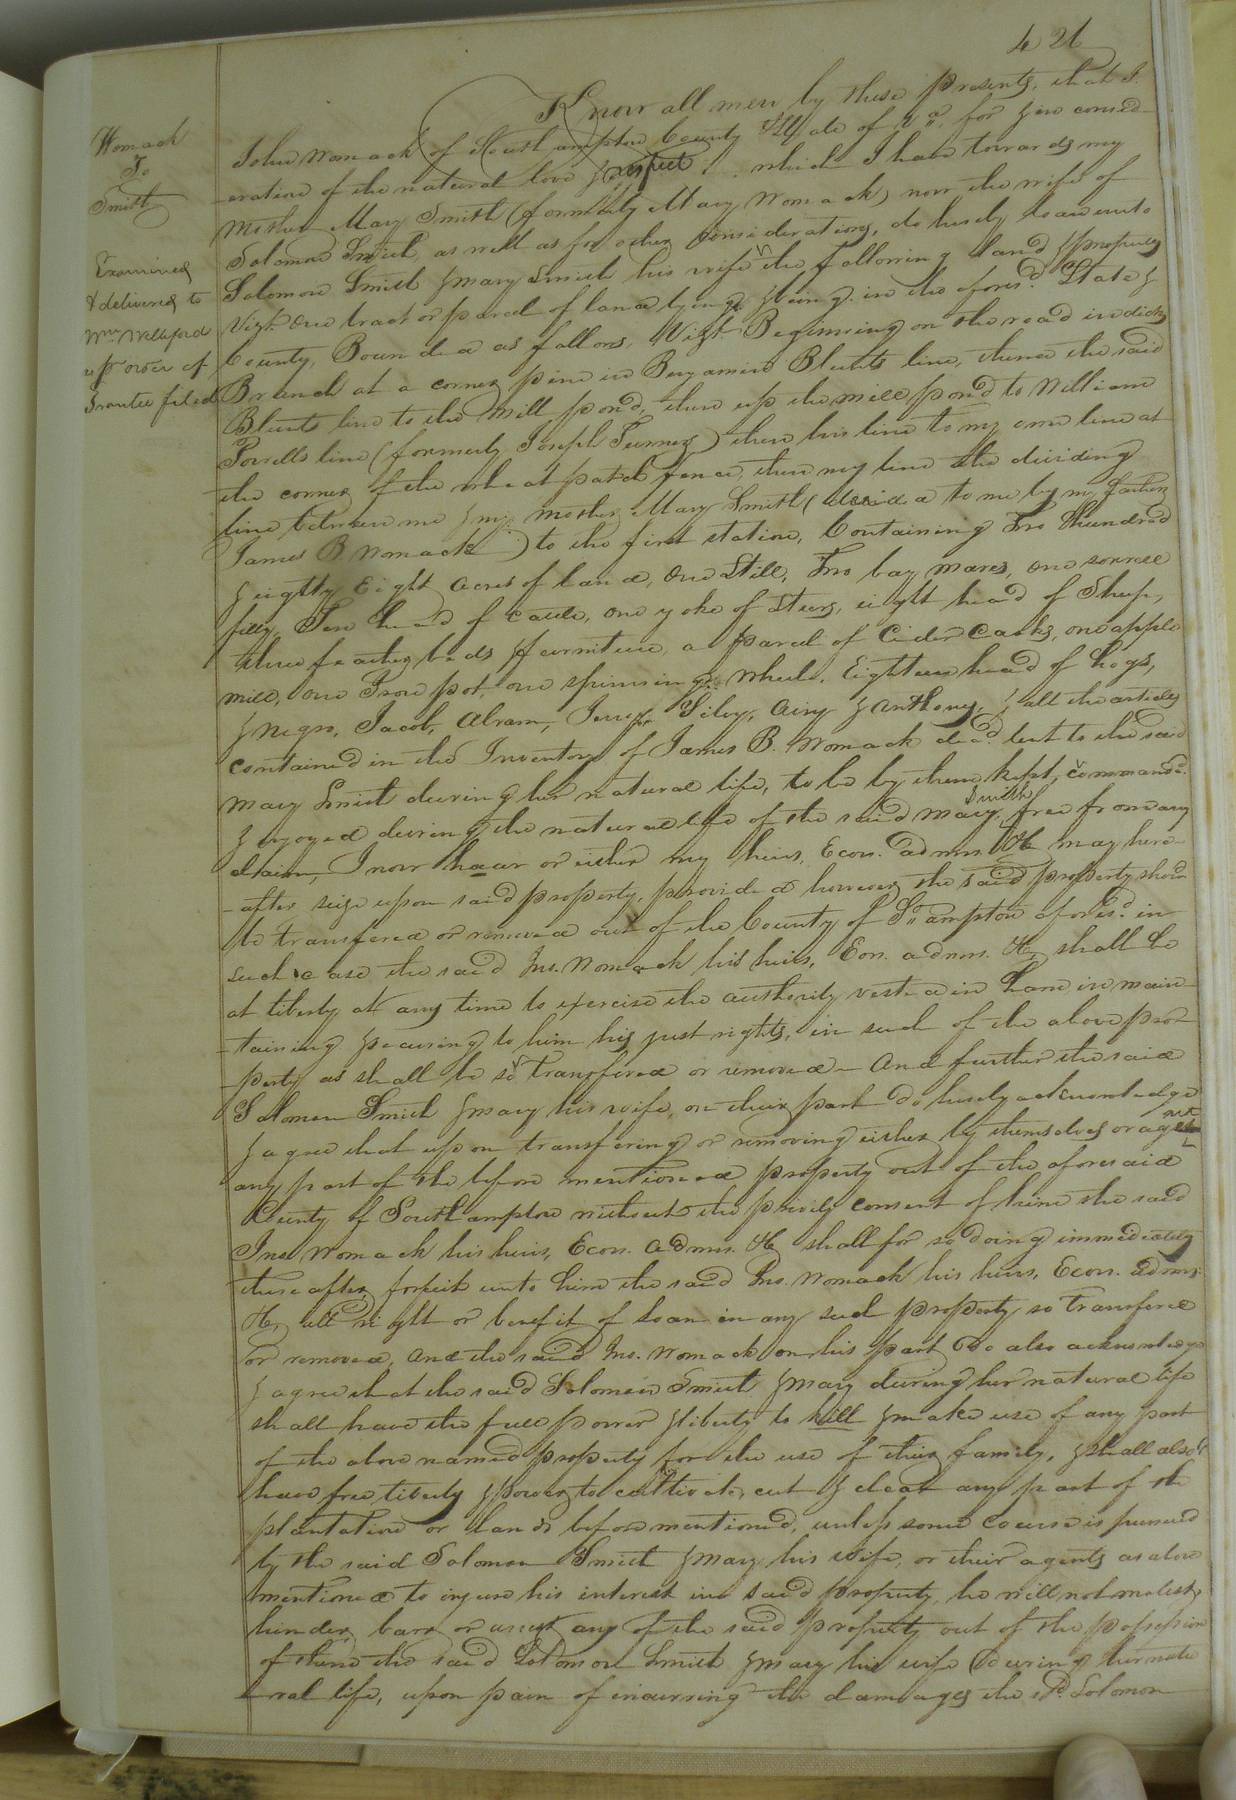 426
Womack
To
Smith
Examined
& delivered to
Wm. Wellford
as pr order of
Grantee filed
Know all men by these presents, that I
John Womack of Southampton County & State of Va. for & in consid-
-eration of the natural love & respect which I have towards my
Mother Mary Smith (formerly Mary Womack) now the wife of
Solomon Smith, as well as for other considerations, do hereby loan unto
Solomon Smith & Mary Smith his wife the following land & property
Vizt. One tract or parcel of land lying & being in the aforesd. State &
County, Bounded as follows, Vizt. Beginning on the road in
Branch at a corner pine in Benjamin Blunts line, thence the said
Blunts line to the Mill pond, then up the mill pond to William
Powells line (formerly Joseph Turner) then his line to my own line at
the corner of the wheat patch fence, then my line the dividing
line between me & my mother Mary Smith ( to me by my father
James B. Womack) to the first station, Containing Two Hundred
& eighty Eight Acres of land, One Still, Two bay mares, one sorrell
filly, Ten head of cattle, one yoke of Steers, eight head of Sheep,
three feather beds & furniture, a parcel of Cider Casks, one apple
mill, one Iron pot, one spinning wheel, Eighteen head of hogs,
& negro, Jacob, Abram, Jerry, Siley, Airy & Anthony, & all the articles
contained in the Inventory of James B. Womack decd. lent to the said
Mary Smith during her natural life, to be by them kept, commanded
& enjoyed during the natural life of the said Mary Smith, free from any
claim, I now have or either my heirs, Exors. admrs. &c. may here-
-after seize upon said property, provided however the said property should
be transfered or removed out of the County of So.ampton aforesd. in
such case the said Jno. Womack his heirs, Exors. admrs. &c. shall be
at liberty at any time to exercise the authority vested in him in main-
-taining & securing to him his just rights, in such of the above pro-
-perty as shall be so transfered or removed - And further the said
Solomon Smith & Mary his wife, on their part do hereby acknowledge
& agree that upon transfering or removing either by themselves or agent
any part of the before mentioned property out of the aforesaid
County of Southampton without the privity consent of him the said
Jno. Womack his heirs, Exors. Admrs. &c. shall for so doing immediately
thereafter forfeit unto him the said Jno. Womack his heirs, Exors. admrs.
&c. all right or benefit of loan in any such property so transfered
or removed, And the said Jno. Womack on his part do also acknowledge
& agree that the said Solomon Smith & Mary during her natural life
shall have the full power & liberty to kill & make use of any part
of the above named property for the use of their family, & shall also
have free liberty & power to cultivate, cut & clear any part of the
plantation or lands before mentioned, unless some course is pursued
by the said Solomon Smith & Mary his wife, or their agents as above
mentioned to injure his interest in said property, he will not molest,
hinder, barr or any of the said property out of the possession
of them the said Solomon Smith & Mary his wife during her natu-
-ral life, upon pain of incurring the damages the sd. Solomon